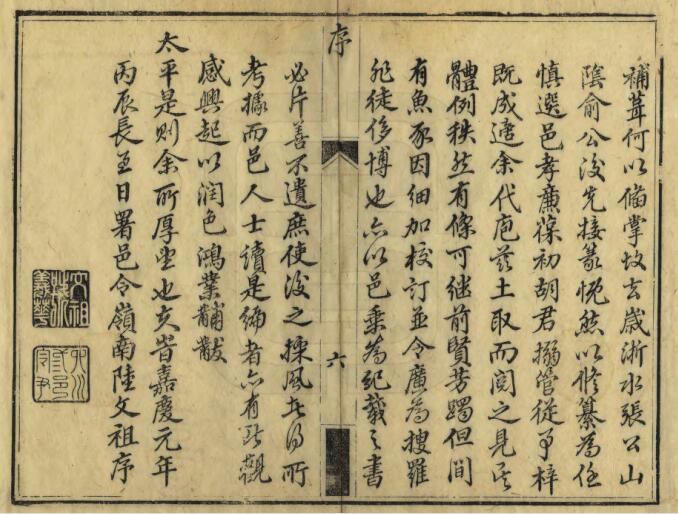 補葺何以備掌故去歲浙水張公山
陰俞公後先接篆恍然以修纂為任
慎選邑孝廉葆初胡君搦管從事梓
既成適余代庖茲土取而閱之見其
體例秩然有條可继前賢芳躅但間
有魚豕因细加校訂並令廣為搜羅
非徒侈博也亦以邑乘為纪載之書
序
六
必片善不遺庶使後之採風者得所
考據而邑人士續是编者亦有所觀
感興起以润色鴻業黼黻
太平是则余所厚望也夫皆嘉慶元年
丙辰長至日署邑令嶺南陸文祖序